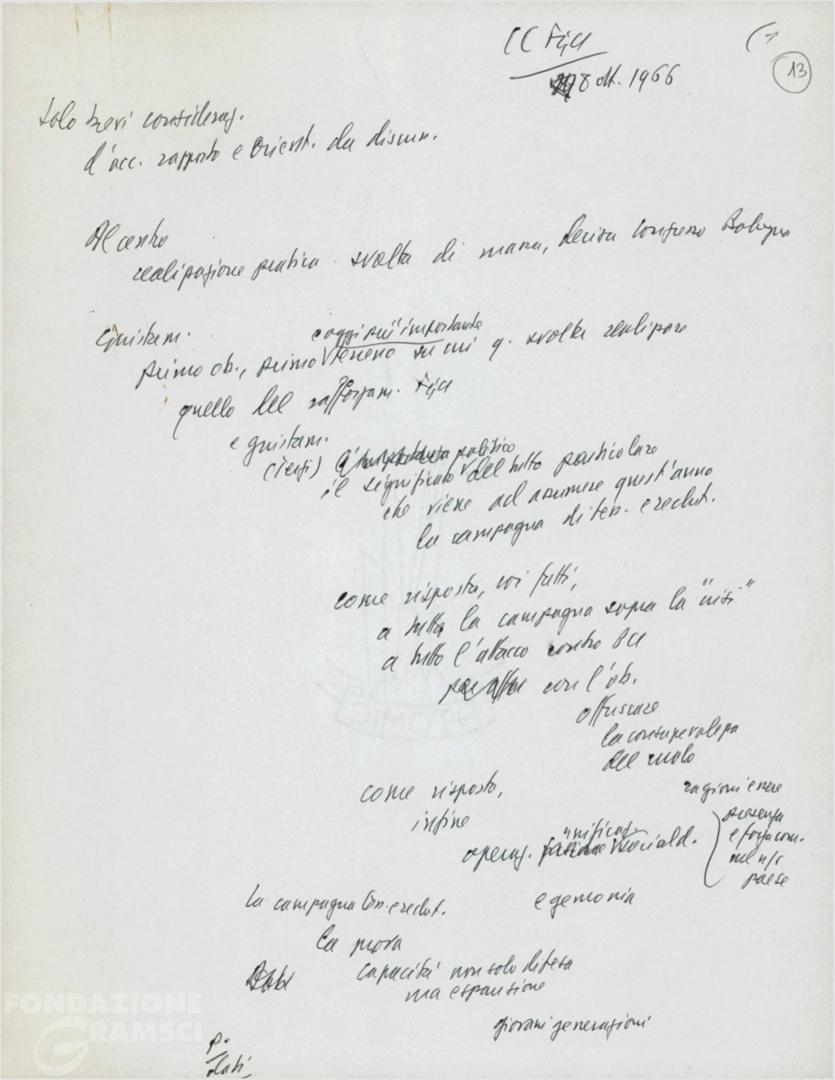 CC Fgci
13
8 ott. 1966
Solo brevi consideraz.
d'acc. rapporto e orient. da discuss.
Al centro
realizzazione pratica svolta di massa, decisa Congresso Bologna
Giustam.
e oggi più importante
primo ob., primo terreno su cui q. svolta realizzare
quello del rafforzam. Fgci
e giustam.
politico
il significato del tutto particolare
che viene ad assumere quest'anno
la campagna di tess. e reclut.
come risposta, coi fatti,
a tutta la campagna sopra la "crisi"
a tutto l'attacco contro PCI
con l'ob.
offuscare
la consapevolezza
del ruolo
ragioni essere
presenza
e forza com.
nel n/s
paese
come risposta,
infine
unificaz.
operaz. sociald.
La campagna tess. e reclut.
egemonia
la prova
capacità non solo difesa
ma espansione
giovani generazioni
p.
dati,
FONDAZIONE
GRAMSCI